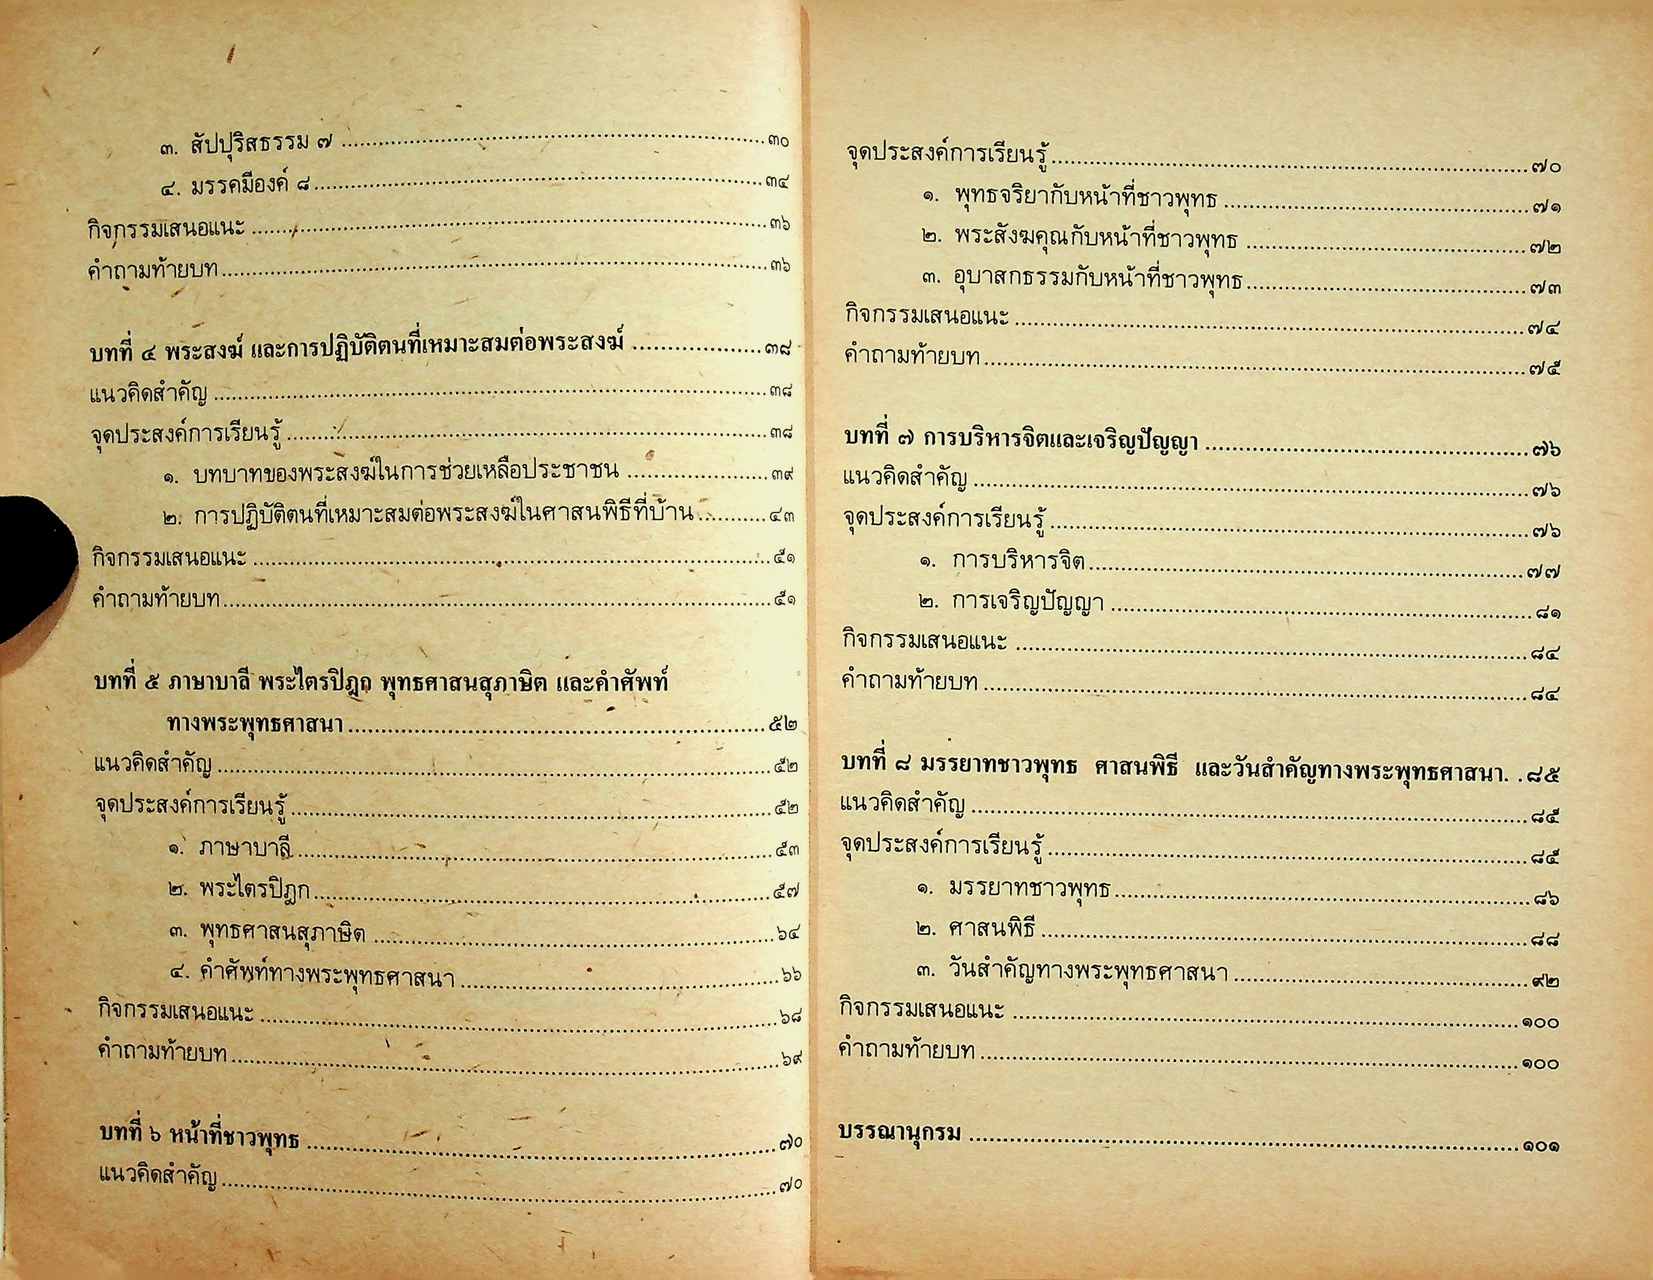 ๓. สัปปุริสธรรม ๗ ........ ๓๐
๔. มรรคมีองค์ ๘ ........ ๓๔
กิจกรรมเสนอแนะ ........ ๓๖
คำถามท้ายบท ........ ๓๖
บทที่ ๔ พระสงฆ์ และการปฏิบัติตนที่เหมาะสมต่อพระสงฆ์ ........ ๓๘
แนวคิดสำคัญ ........ ๓๘
จุดประสงค์การเรียนรู้ ........ ๓๘
๑. บทบาทของพระสงฆ์ในการช่วยเหลือประชาชน ........ ๓๙
๒. การปฏิบัติตนที่เหมาะสมต่อพระสงฆ์ในศาสนพิธีที่บ้าน ........ ๔๓
กิจกรรมเสนอแนะ ........ ๕๑
คำถามท้ายบท ........ ๕๑
บทที่ ๕ ภาษาบาลี พระไตรปิฎก พุทธศาสนสุภาษิต และคำศัพท์
ทางพระพุทธศาสนา ........ ๕๒
แนวคิดสำคัญ ........ ๕๒
จุดประสงค์การเรียนรู้ ........ ๕๒
๑. ภาษาบาลี ........ ๕๓
๒. พระไตรปิฎก ........ ๕๗
๓. พุทธศาสนสุภาษิต ........ ๖๔
๔. คำศัพท์ทางพระพุทธศาสนา ........ ๖๖
กิจกรรมเสนอแนะ ........ ๖๘
คำถามท้ายบท ........ ๖๙
บทที่ ๖ หน้าที่ชาวพุทธ ........ ๗๐
แนวคิดสำคัญ ........ ๗๐
จุดประสงค์การเรียนรู้ ........ ๗๐
๑. พุทธจริยากับหน้าที่ชาวพุทธ ........ ๗๑
๒. พระสังฆคุณกับหน้าที่ชาวพุทธ ........ ๗๒
๓. อุบาสกธรรมกับหน้าที่ชาวพุทธ ........ ๗๓
กิจกรรมเสนอแนะ ........ ๗๔
คำถามท้ายบท ........ ๗๕
บทที่ ๗ การบริหารจิตและเจริญปัญญา ........ ๗๖
แนวคิดสำคัญ ........ ๗๖
จุดประสงค์การเรียนรู้ ........ ๗๖
๑. การบริหารจิต ........ ๗๗
๒. การเจริญปัญญา ........ ๘๑
กิจกรรมเสนอแนะ ........ ๘๔
คำถามท้ายบท ........ ๘๔
บทที่ ๘ มรรยาทชาวพุทธ ศาสนพิธี และวันสำคัญทางพระพุทธศาสนา. . ๘๕
แนวคิดสำคัญ ........ ๘๕
จุดประสงค์การเรียนรู้ ........ ๘๕
๑. มรรยาทชาวพุทธ ........ ๘๖
๒. ศาสนพิธี ........ ๘๘
๓. วันสำคัญทางพระพุทธศาสนา ........ ๙๒
กิจกรรมเสนอแนะ ........ ๑๐๐
คำถามท้ายบท ........ ๑๐๐
บรรณานุกรม ........ ๑๐๑